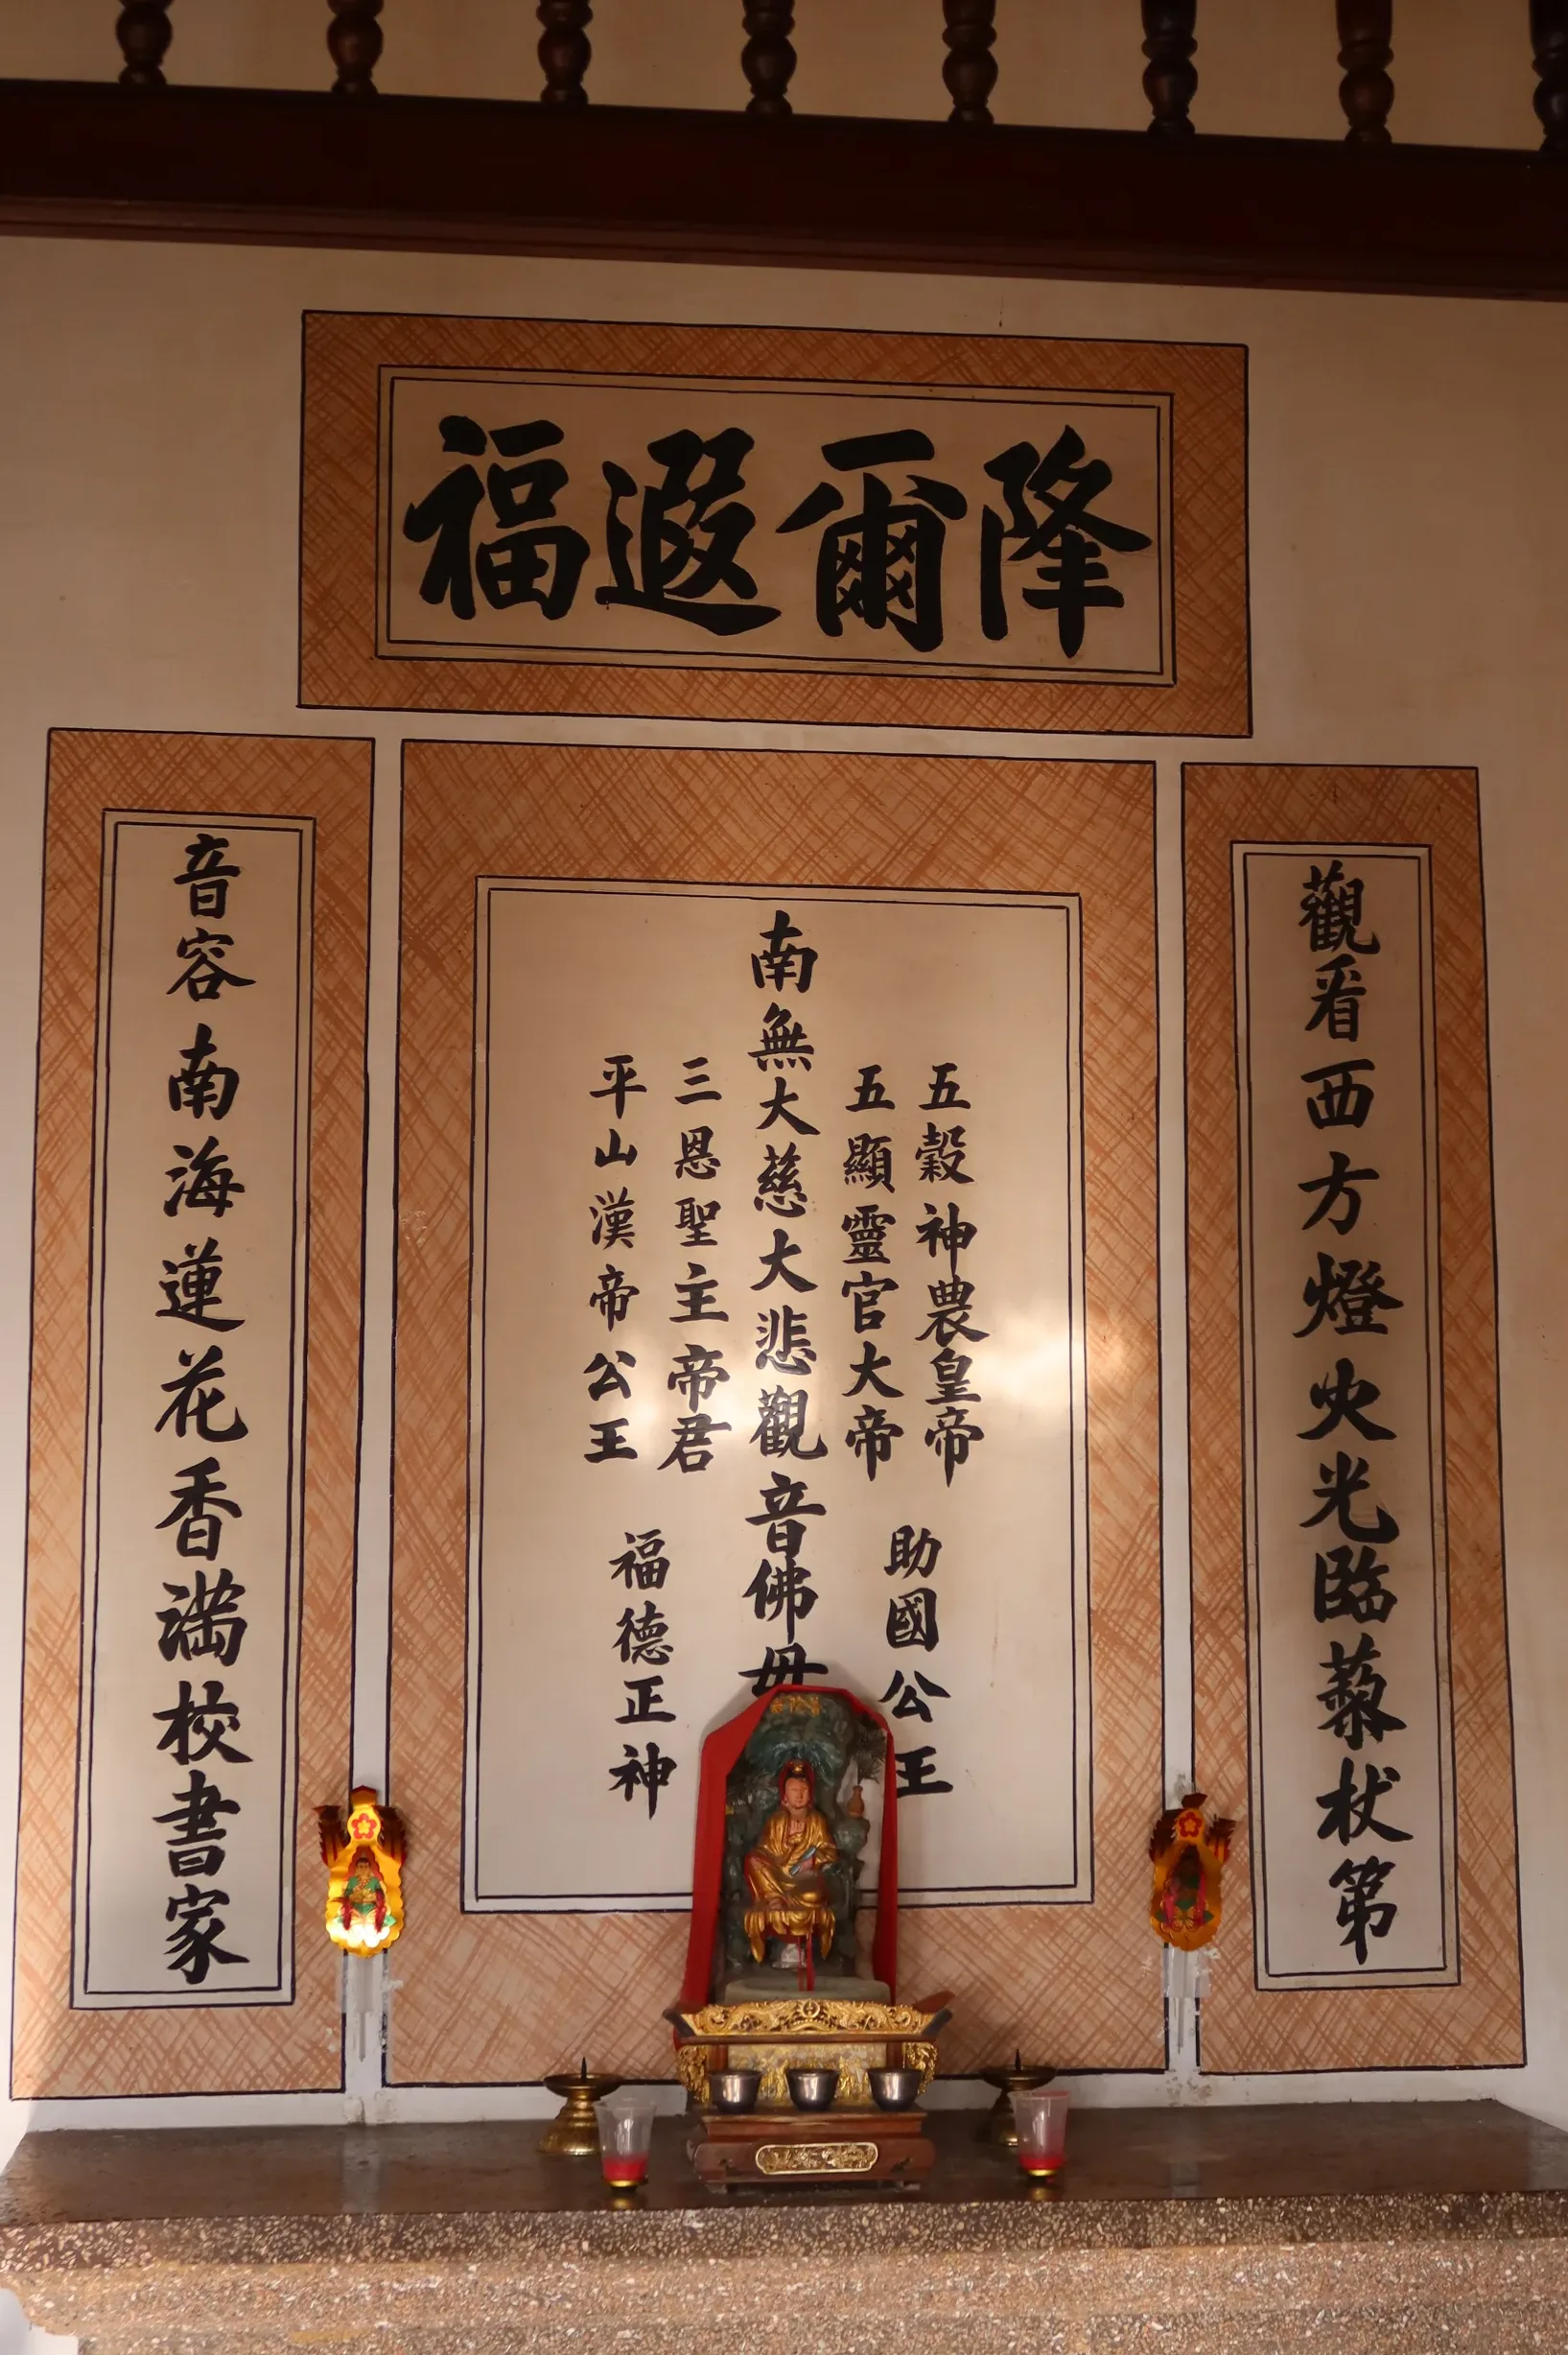 降爾遐福
觀看西方燈火光臨藜杖第
五穀神農皇帝
五顯靈官大帝
助國公王
南無大慈大悲觀音佛母
三恩聖主帝君
平山漢帝公王
福德正神
音容南海蓮花香滿校書家